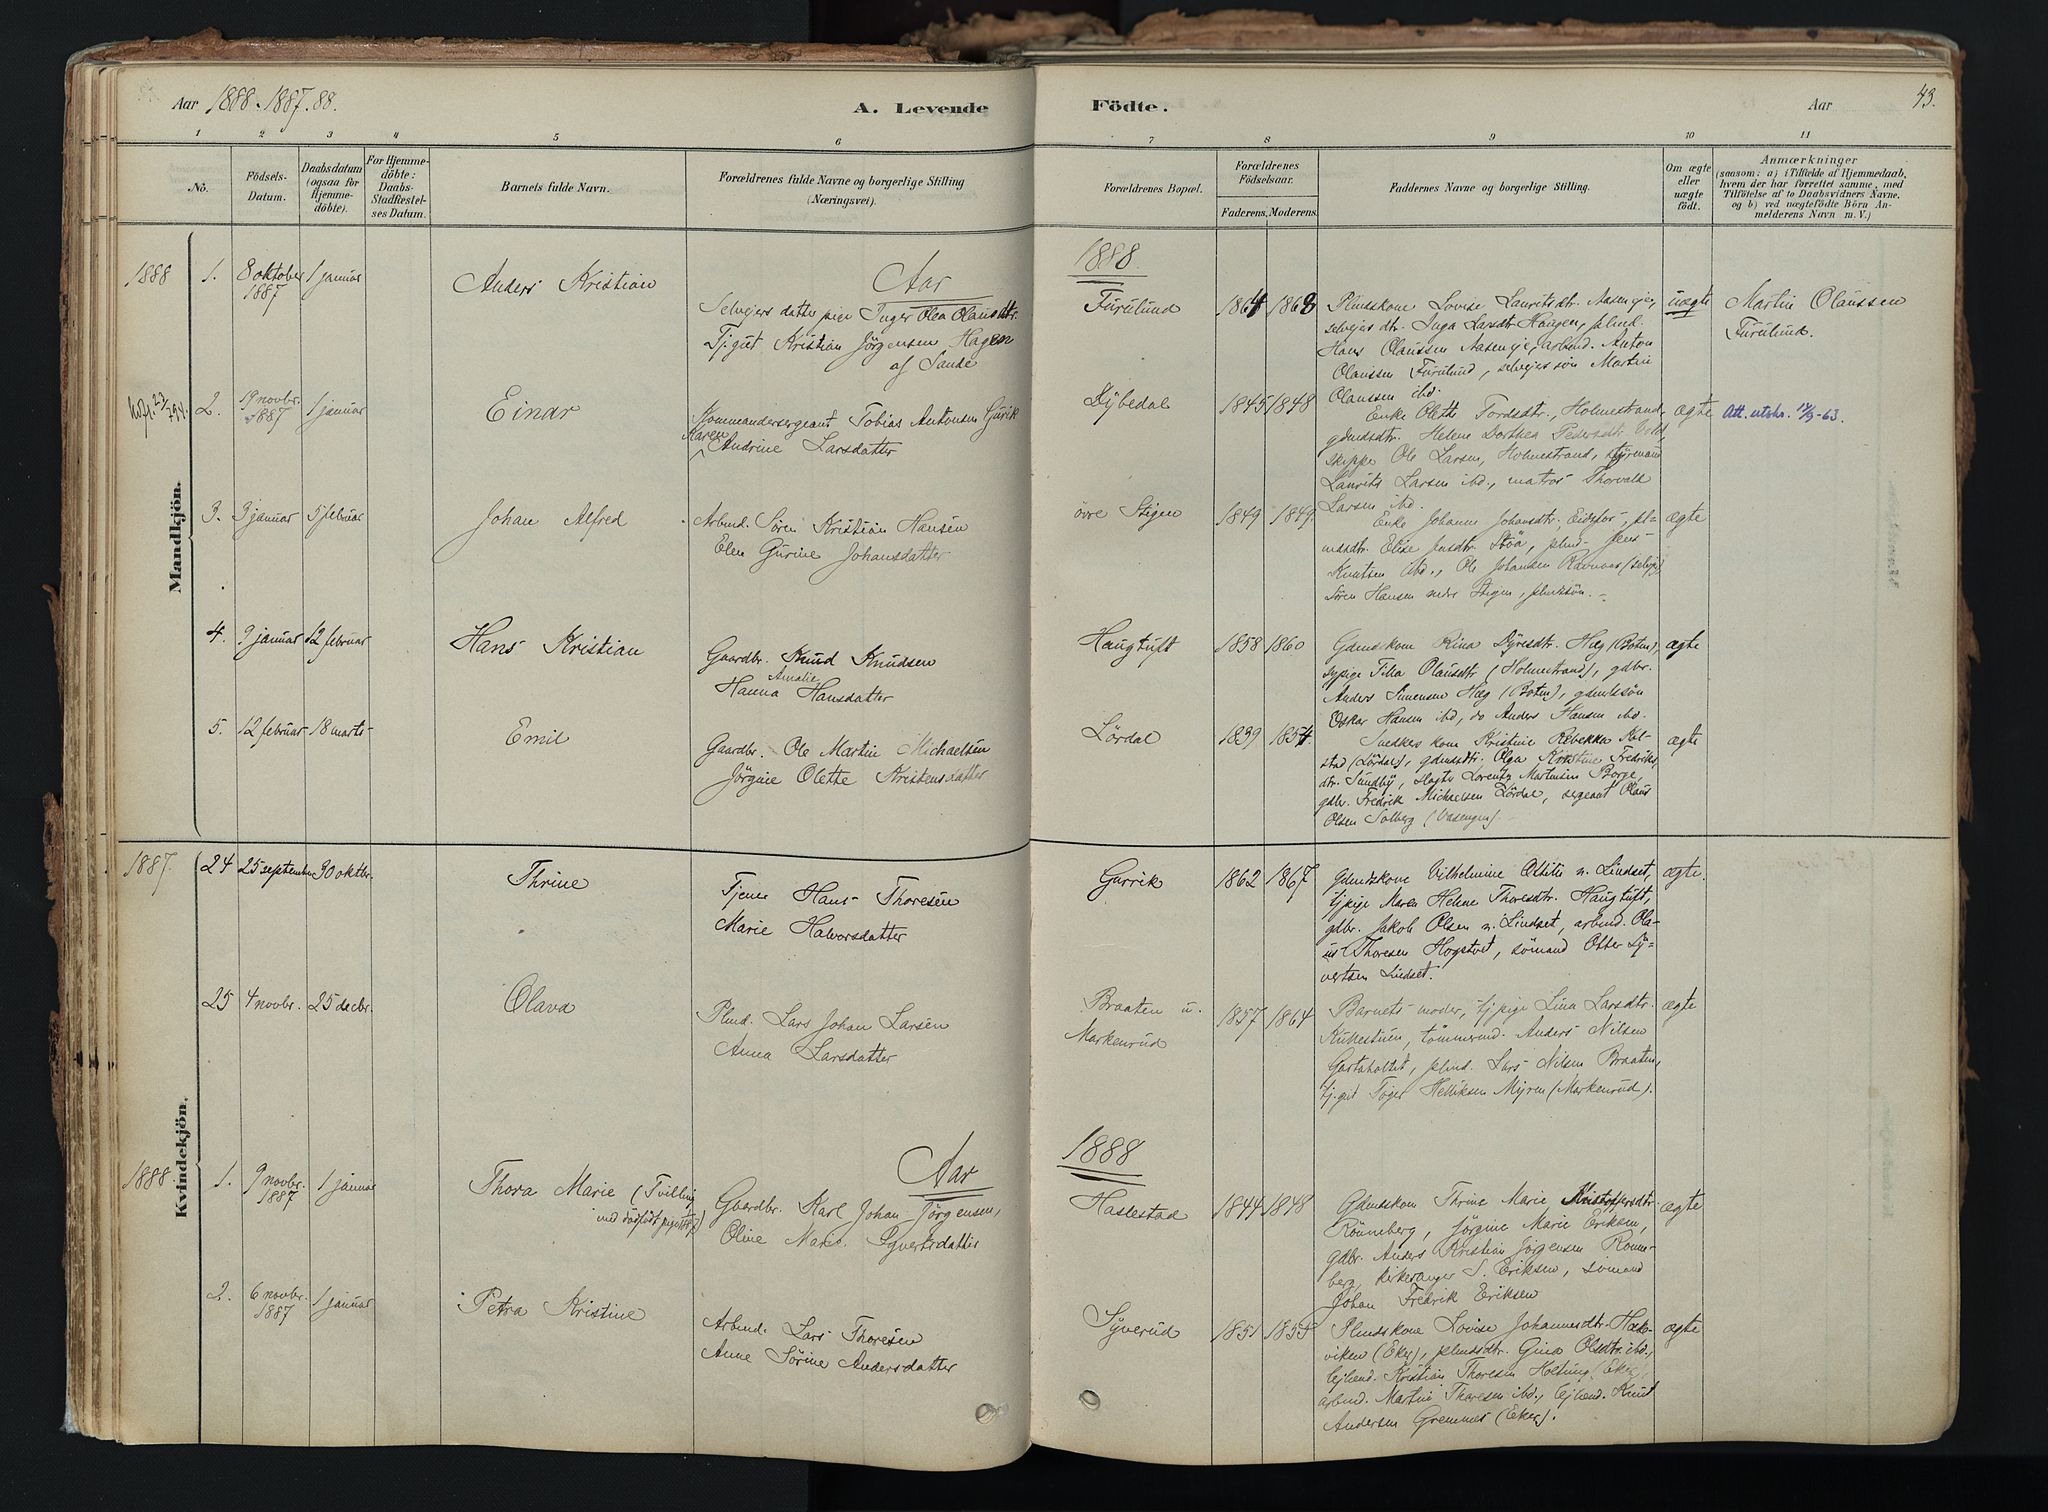 Aar 1888. 1887. 88.
A. Levende
Födte.
Aar
43.
1 2 3 4 5 6 7 8 9 10 11
No.
Födsels-Datum.
Daabsdatum (ogsaa for Hjemme-döbte).
For Hjemme-döbte: Daabs-Stadfæstel-ses Datum.
Barnets fulde Navn.
Forældrenes fulde Navne og borgerlige Stilling (Næringsvei).
Forældrenes Bopæl.
Forældrenes Födselsaar.
Faderens. Moderens.
Faddernes Navne og borgerlige Stilling.
Om ægte eller uægte födt.
Anmærkninger
(saasom: a) i Tilfælde af Hjemmedaab,
hvem der har forrettet samme, med
Tilföielse af to Daabsvidners Navne,
og b) ved uægtefödte Börn An-
melderens Navn m. V.)
Mandkjön.
Aar 1888.
1888 1. 8 oktober 1887 1 januar
Anders Kristian
Selvejers datter pige Inger Olea Olausdtr.
Tj.gut Kristian Jörgensen Hagen
af Sande
Furulund 1864 1868
Plmdskone Lovise Lauritsdtr. Aasenejej,
selvejers dtr. Inga Larsdtr Haugen, plmd.
Hans Olaussen Aaseneje, arbmd. Anton
Olaussen Furulund, selvejers sön Martin
Olaussen ibd.
uægte
Martin Olaussen
Furulund.
2. 19 novbr. 1887 1 januar
Einar
Kommandersergeant Tobias Antonsen Gurik
Karen Andrine Larsdatter
Dybedal 1845 1848
Enke Olette Tordsdtr., Holmestrand,
gdmdsdtr. Helene Dorthea Pedersdtr.
skipper Ole Larsen, Holmestrand, styrmand
Laurits Larsen ibd., matros Thorvald
Larsen ibd.
ægte
Att. utskr. 12/9-63.
3. 3 januar 5 februar
Johan Alfred
Arbmd. Sören Kristian Hansen
Elen Gurine Johansdatter
övre Stigen 1849 1849.
Enke Johanne Johansdtr. Eidsfos, pl-
mdsdtr. Elise Jensdtr. Stöa, plmd. Jens
Knutsen ibd., Ole Johansen Ravnaas (selvej),
Sören Hansen nedre Stigen, plmdssön.
ægte
4. 9 januar 12 februar
Hans Kristian
Gaardbr. Knud Knudsen
Hanna Amalie Hansdatter
Haugtuft 1858 1860
Gdmdskom Rina Dyresdtr. Hæg (Botne),
sypige Tilla Olausdtr (Holmestrand), gdbr.
Anders Simensen Hæg (Botne), gdmdssön
Oskar Hansen ibd, do Anders Hansen ibd.
ægte
5. 12 februar 18 marts
Emil
Gaardbr. Ole Martin Michaelsen
Jörgine Olette Kristensdatter
Lördal 1839 1854.
Snedkers kone Kristine Rebekka Kil-
stad (Lördal), gdmdsdtr. Olga Kristine Fredriks
dtr. Sundby, Lorentz Martinsen Borge,
gdbr. Fredrik Michaelsen Lördal, sergeant Olaus
Olsen Solberg (Vasengen).
ægte
Kvindekjön.
1887. 24 25 september 30 oktbr.
Thrine
Tjener Hans Thoresen
Marie Halvorsdatter
Gurrik 1862 1867
Gdmdskone Vilhelmine Ottilie n. Lindset,
tj.pige Maren Helene Thoresdtr. Haugtuft,
gdbr. Jakob Olsen n. Lindset, arbmd. Ola-
us Thoresen Hogstvet, sömand Otter Sy-
vertsen Lindset.
ægte.
25 4 novbr. 25 decbr.
Olava
Plmd. Lars Johan Larsen
Anna Larsdatter
Braaten u.
Markenrud
1857 1864
Barnets moder, tj.pige Lina Larsdtr.
Kukestuen, tömmermd. Anders Nilsen
Gartaholtet, plmd. Lars Nilsen Braaten,
tj.gut Toger Helliksen Myren (Markenrud).
ægte
Aar 1888
1888. 1. 9 novbr. 1887 1 januar
Thora Marie (Tvilling
med dödfödt pige)
Gaardbr. Karl Johan Jörgensen,
Oline Marie Syvertsdatter
Haslestad 1844 1848
Gdmdskone Thrine Marie Kristoffersdtr
Rönneberg, Jörgine Marie Eriksen,
gdbr. Anders Kristian Jörgensen Rönne-
berg, kirkesanger S. Eriksen, sömand
Johan Fredrik Eriksen
ægte
2. 6 novbr. 1887 1 januar
Petra Kristine
Arbmd. Lars Thoresen
Anne Sörine Andersdatter
Syverud 1851 1855
Plmdskone Lovise Johannesdtr. Hæk-
viken (Eker), plmdsdtr. Gina Olsdtr. ibd.,
lejlænd. Kristian Thoresen Holtung (Eker),
arbmd. Martin Thoresen ibd., lejlænd. Knut
Andersen Gremmes (Eker).
ægte